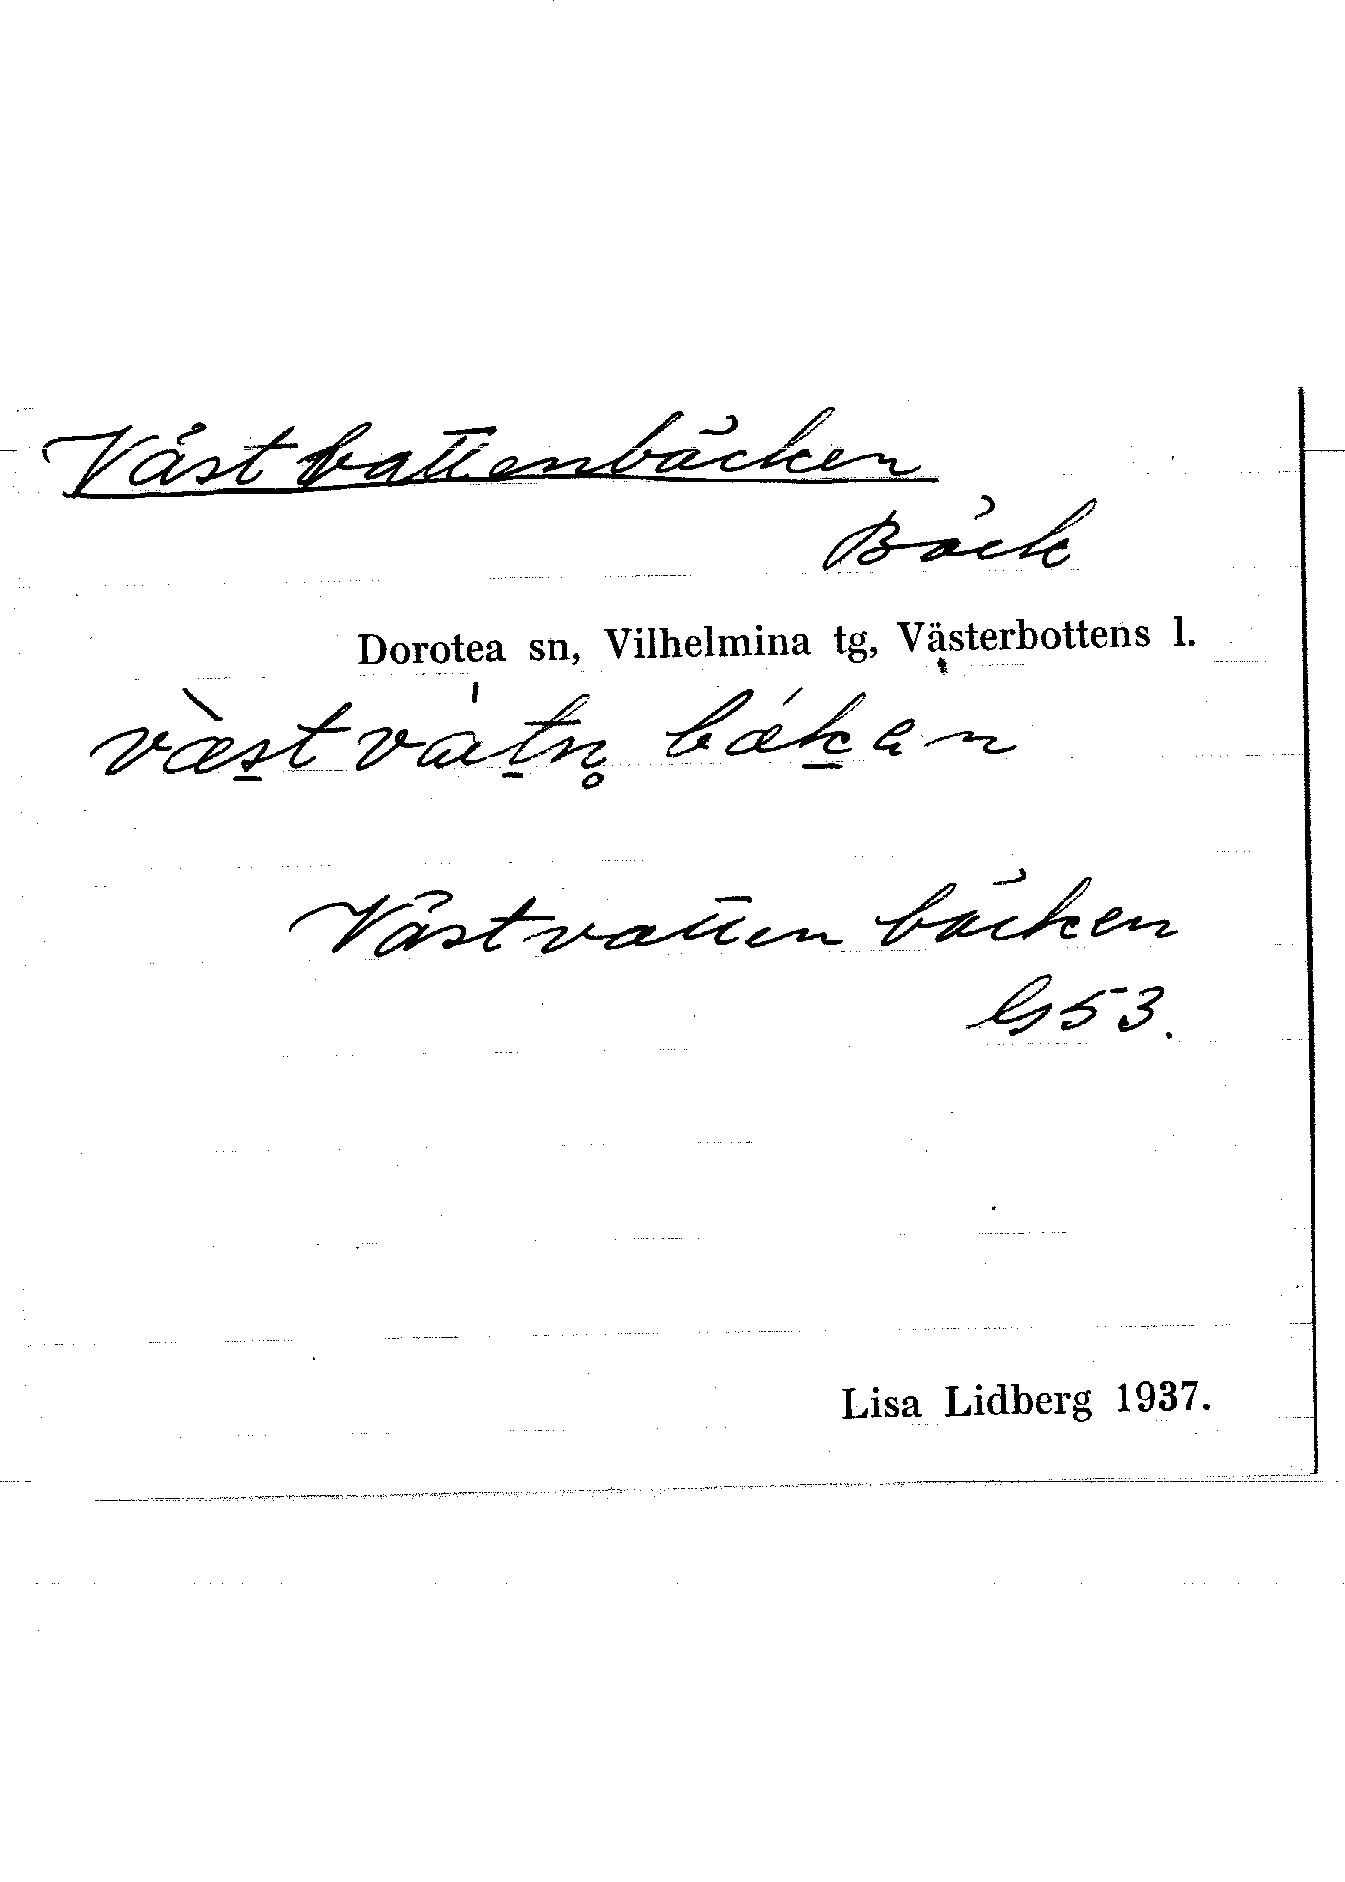 Västvattenbäcken
Bäck
Dorotea sn, Vilhelmina tg, Västerbottens l.
væ̀st vátn̥ bǽkan
Västvattenbäcken
G53.
Lisa Lidberg 1937.